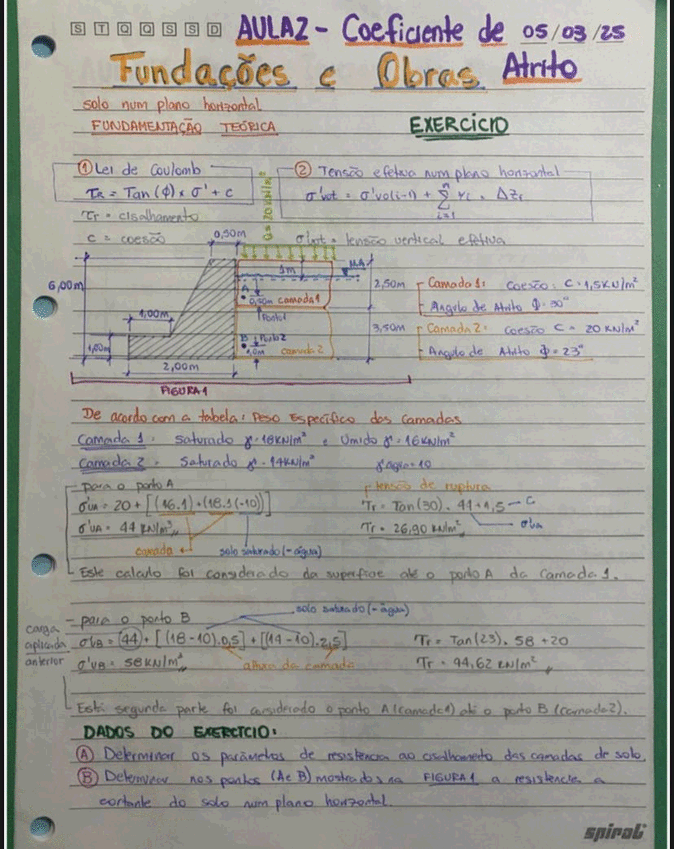 S T Q Q S S D AULA2 - Coeficiente de 05/03/25
Fundações e Obras Atrito
solo num plano horizontal
FUNDAMENTAÇÃO TEÓRICA
EXERCÍCIO
① Lei de Coulomb
τR = Tan(ϕ) × σ' + c
② Tensão efetiva num plano horizontal
σ'vot = σ'vo(i-1) + Σ γi · Δzi
n
i=1
τr = cisalhamento
c = coesão
σ'vot = tensão vertical efetiva
Q = 20 KN/m²
0,50m
6,00m
1,00m
1,00m
2,00m
1m
N.A
A
0,50m camada1
Ponto1
B Ponto2
1,0m camada2
2,50m
3,50m
Camada 1: Coesão: C = 1,5KN/m²
Angulo de Atrito ϕ = 30°
Camada 2: coesão C = 20 KN/m²
Angulo de Atrito ϕ = 23°
FIGURA1
De acordo com a tabela: Peso Específico das camadas
Camada 1: Saturado γ = 18KN/m² e Úmido γ = 16KN/m²
Camada 2: Saturado γ = 14KN/m² γagua = 10
para o ponto A
σ'VA = 20 + [(16.1) + (18.1(-10))]
σ'VA = 44 KN/m²
camada
solo saturado (- água)
tensão de ruptura
Tr = Tan(30) . 44 + 1,5 - C
Tr = 26,90 KN/m²
σ'va
Este calculo foi considerado da superficie até o ponto A da Camada 1.
carga aplicada anterior
para o ponto B
solo saturado (- água)
σ'vB = (44) + [(18-10).0,5] + [(14-10).2,5]
σ'VB = 58KN/m²
altura da camada
Tr = Tan(23) . 58 + 20
Tr = 44,62 KN/m²
Está segunda parte foi considerado o ponto A (camada1) até o ponto B (camada2).
DADOS DO EXERCÍCIO:
Ⓐ Determinar os parâmetros de resistência ao cisalhamento das camadas de solo.
Ⓑ Determinar nos pontos (A e B) mostrados na FIGURA 1 a resistencia a
cortante do solo num plano horizontal.
spiral